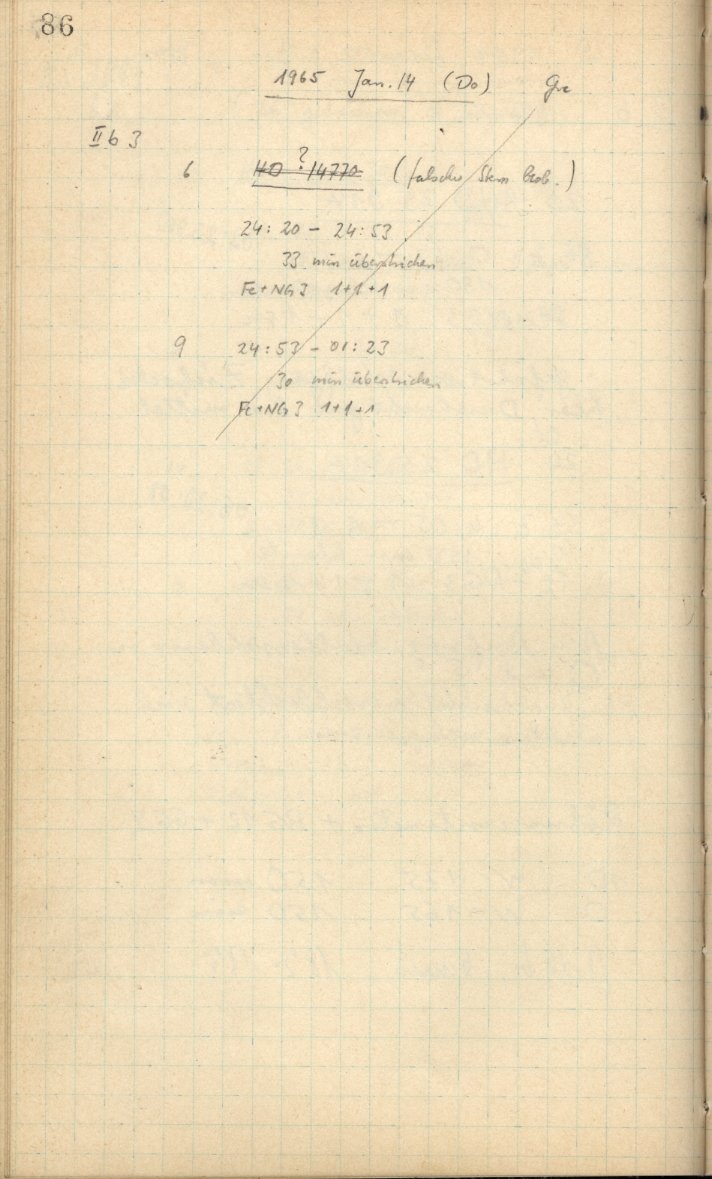 86
1965 Jan. 14 (Do) Gre
II b 3
6 HD ? 14770 (falscher Stern beob.)
24:20 - 24:53
33 min überstrichen
Fe+NG3 1+1+1
9 24:53 - 01:23
30 min überstrichen
Fe+NG3 1+1+1